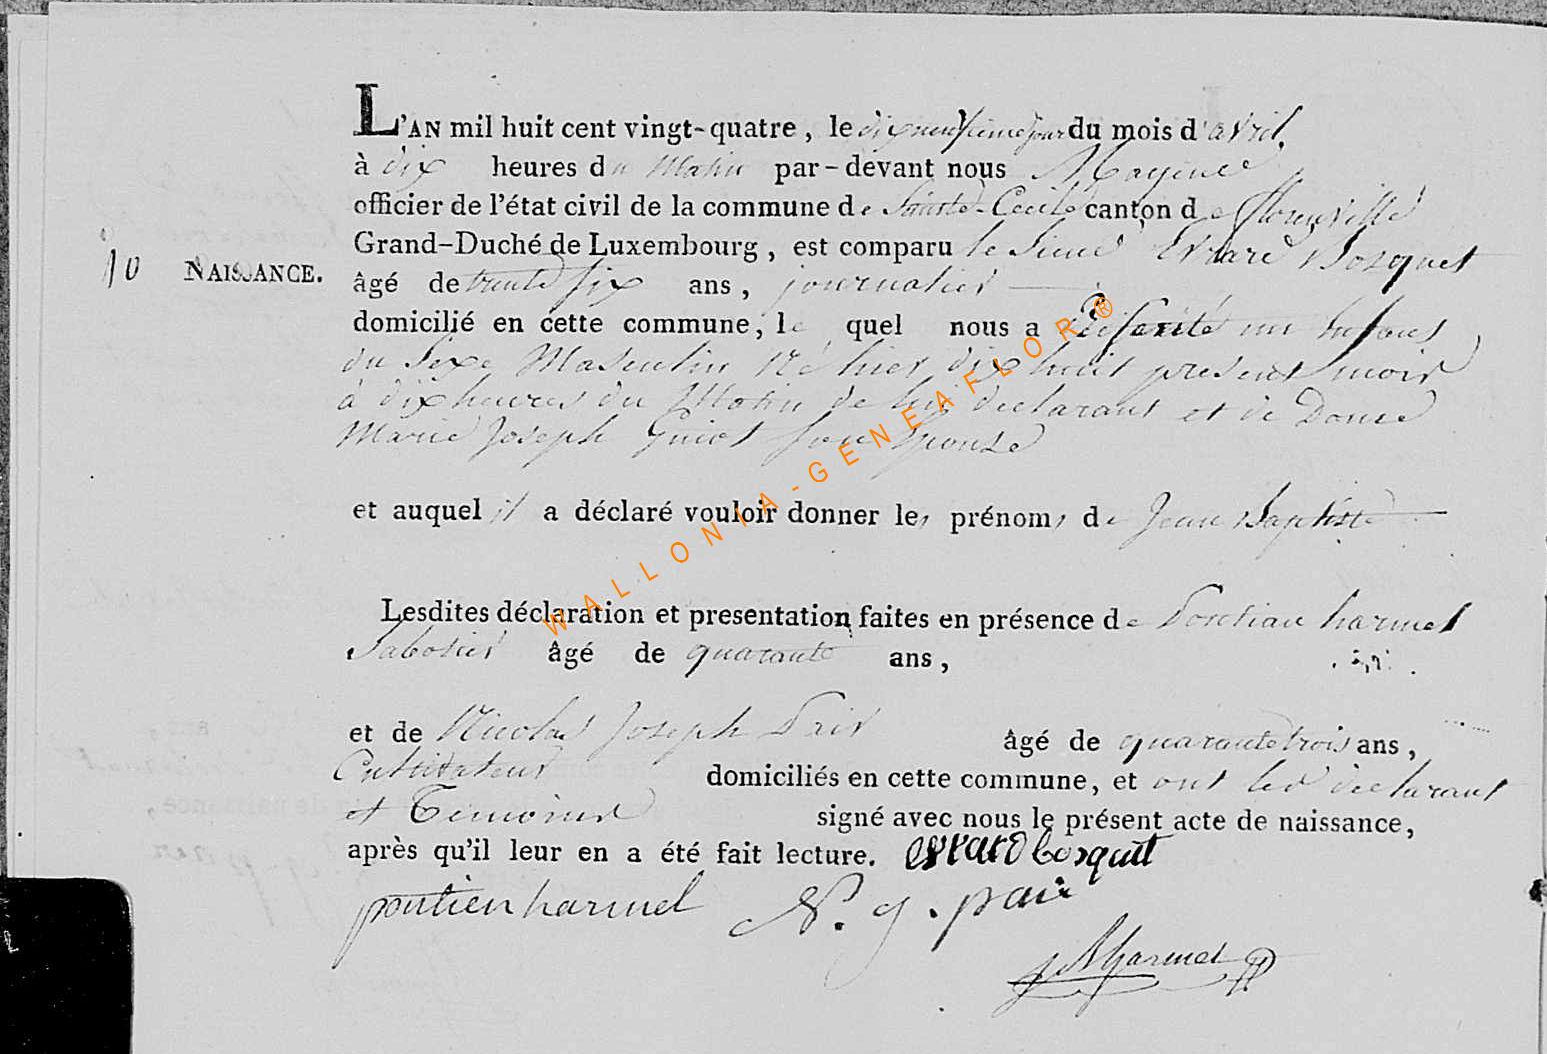 L'AN mil huit cent vingt-quatre, le dix neufvieme jour du mois d'avril,
à dix heures du Matin par-devant nous
officier de l'état civil de la commune de Sainte-Cecile canton de florenville
Grand-Duché de Luxembourg, est comparu le Sieur Evrard Bosquet
10 NAISSANCE.
âgé de trente six ans, journalier
domicilié en cette commune, le quel nous a présenté un Enfant
du Sexe Masculin né hier dix huit present mois
à dix heures du Matin de lui declarant et de Dame
Marie Joseph Guiot son Epouse
et auquel il a déclaré vouloir donner les prénoms de Jean Baptiste
Lesdites déclaration et presentation faites en présence de harmel
Sabotier âgé de quarante ans,
et de Nicolas Joseph Pair âgé de quarante trois ans,
Cultivateur domiciliés en cette commune, et ont les declarant
et Temoins signé avec nous le présent acte de naissance,
après qu'il leur en a été fait lecture. evrard bosquet
pontien harmel N. j. pair
Harmel
WALLONIA-GENEAFLOR®